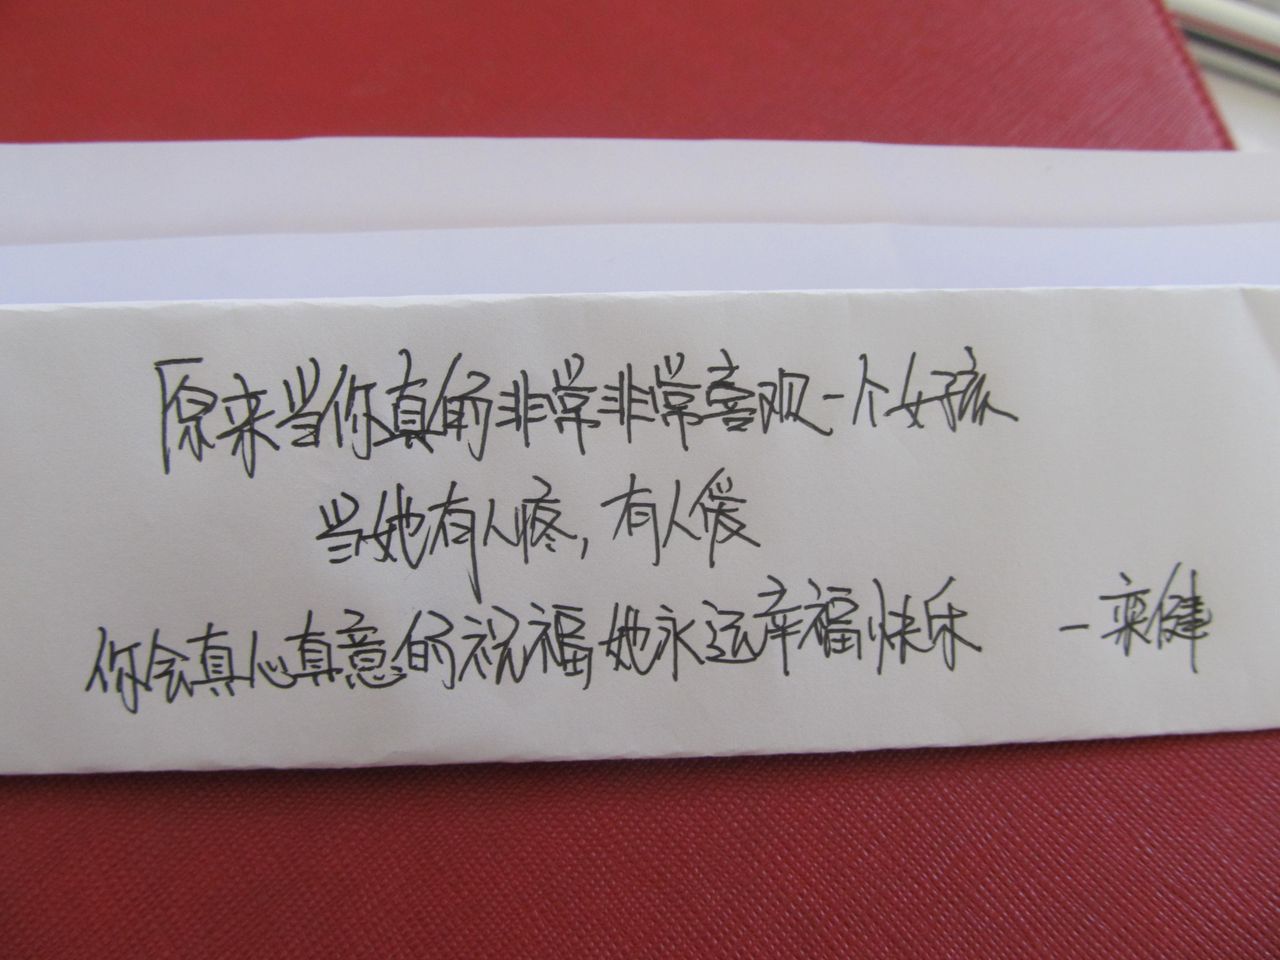 原来当你真的非常非常喜欢一个女孩
当她有人疼，有人爱
你会真心真意的祝福她永远幸福快乐 —栾健